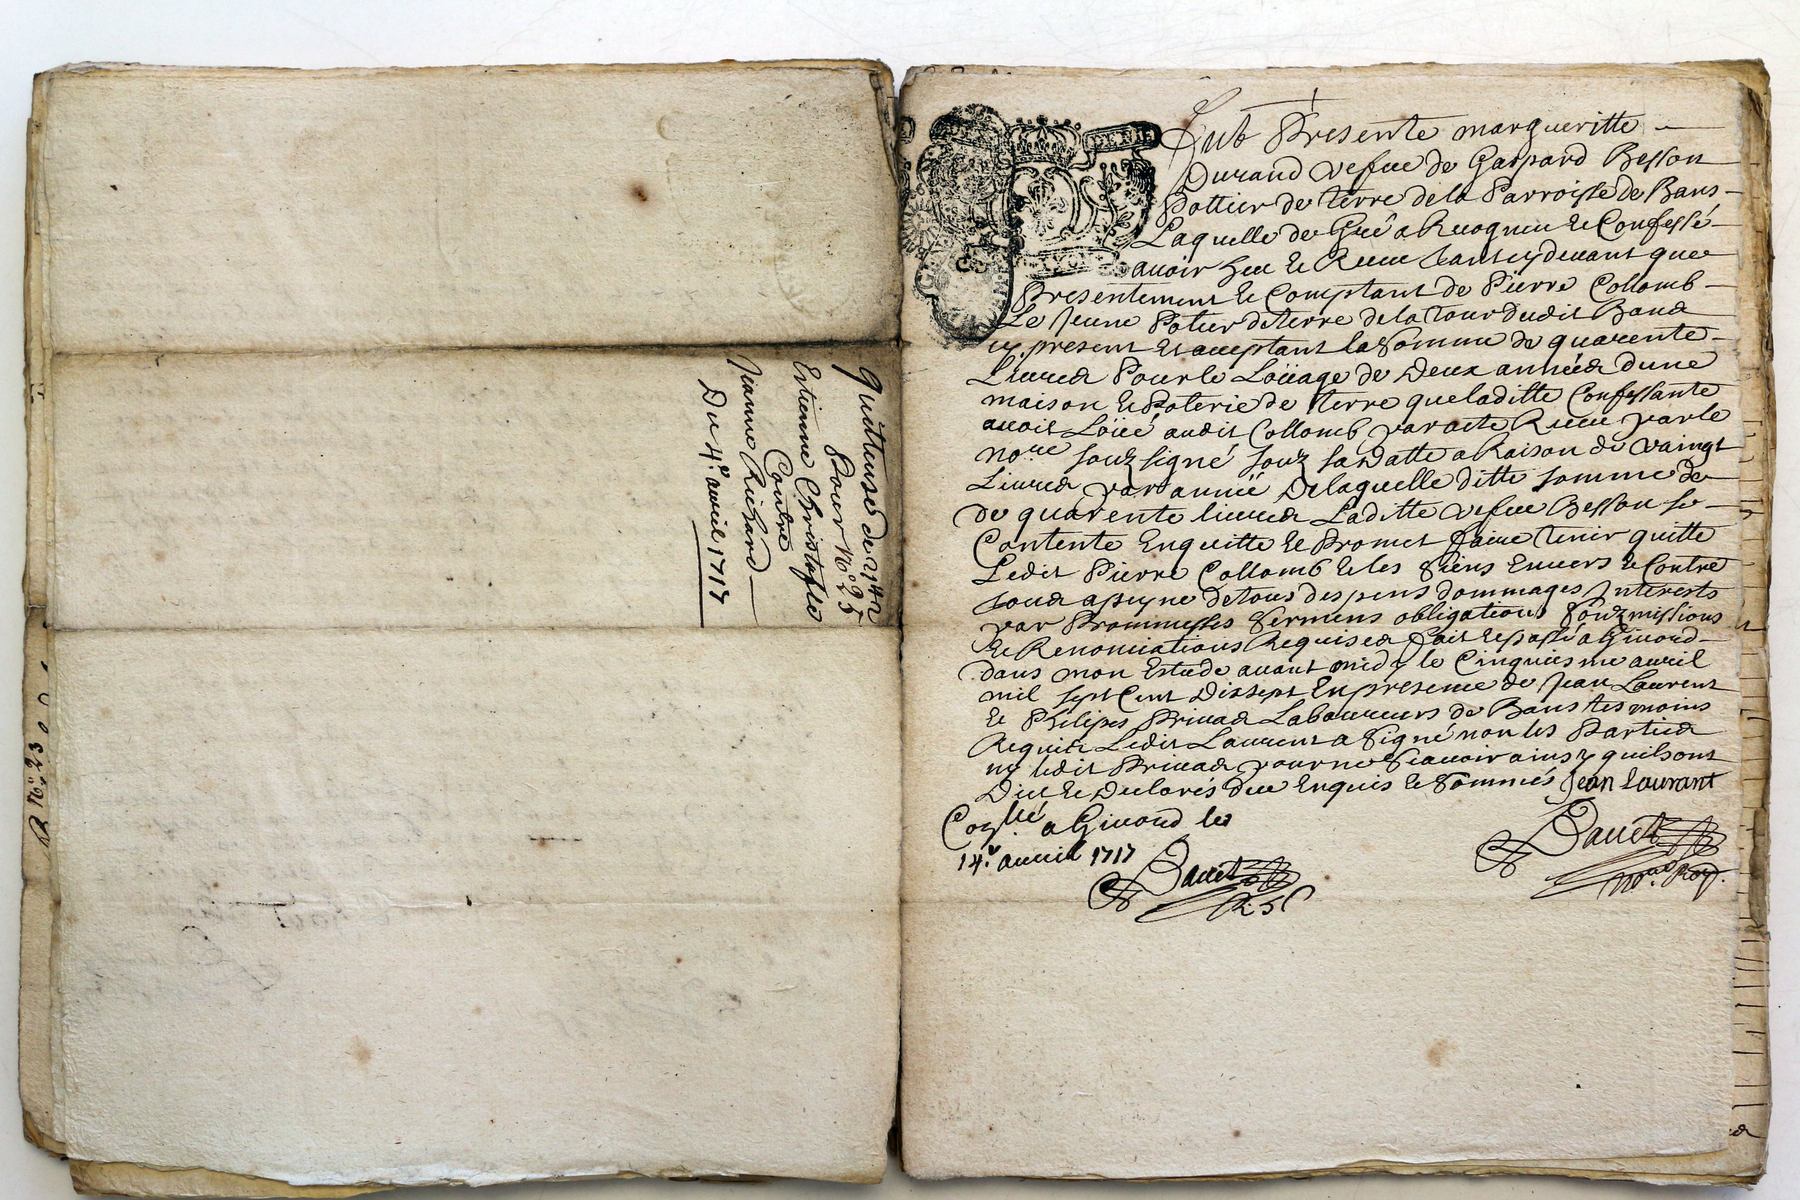 quittance de
Pour N.° 25
Estienne Christofle
Contre
Jeanne Richard
Du 4.e avril 1717
N.° 23
fut Presente margueritte
Durand vefue de Gaspard Besson
Pottier de terre de la Parroisse de Bans
Laquelle de Gré a Recognu et Confessé
auoir heu et Receu tant cy deuant que
Presentement et Comptant de Pierre Collomb
Le Jeune Potier de terre de la tour dudit Bans
cy present et acceptant la Somme de quarente
Liures Pour le Loüage de Deux années dune
maison et Poterie de terre que laditte Confessante
auoit Loüé audit Collomb par acte Receu par le
no.re souz signé souz sa Datte a Raison de vaingt
Liures par année De laquelle ditte somme de
de quarente liures Laditte vefue Besson se
Contente Enquitte et Promet faire tenir quitte
Ledit Pierre Collomb et les Siens Enuers et Contre
tous a peyne de tous despens dommages Interests
par Prommesses Sermens obligations Souzmissions
et Renonciations Requises fait et passé a Giuord
dans mon Estude auant midy le Cinquiesme auril
mil sept Cent Dixsept En presence de Jean Laurent
et Philipes Priuas Laboureurs de Bans tesmoins
Requis Ledit Laurent a Signé non les Parties
ny ledit Priuas pour ne Scauoir ainsy quils ont
Dit et Declarés due Enquis et Sommés Jean Laurant
Con.llé a Giuord le
14.e auril 1717